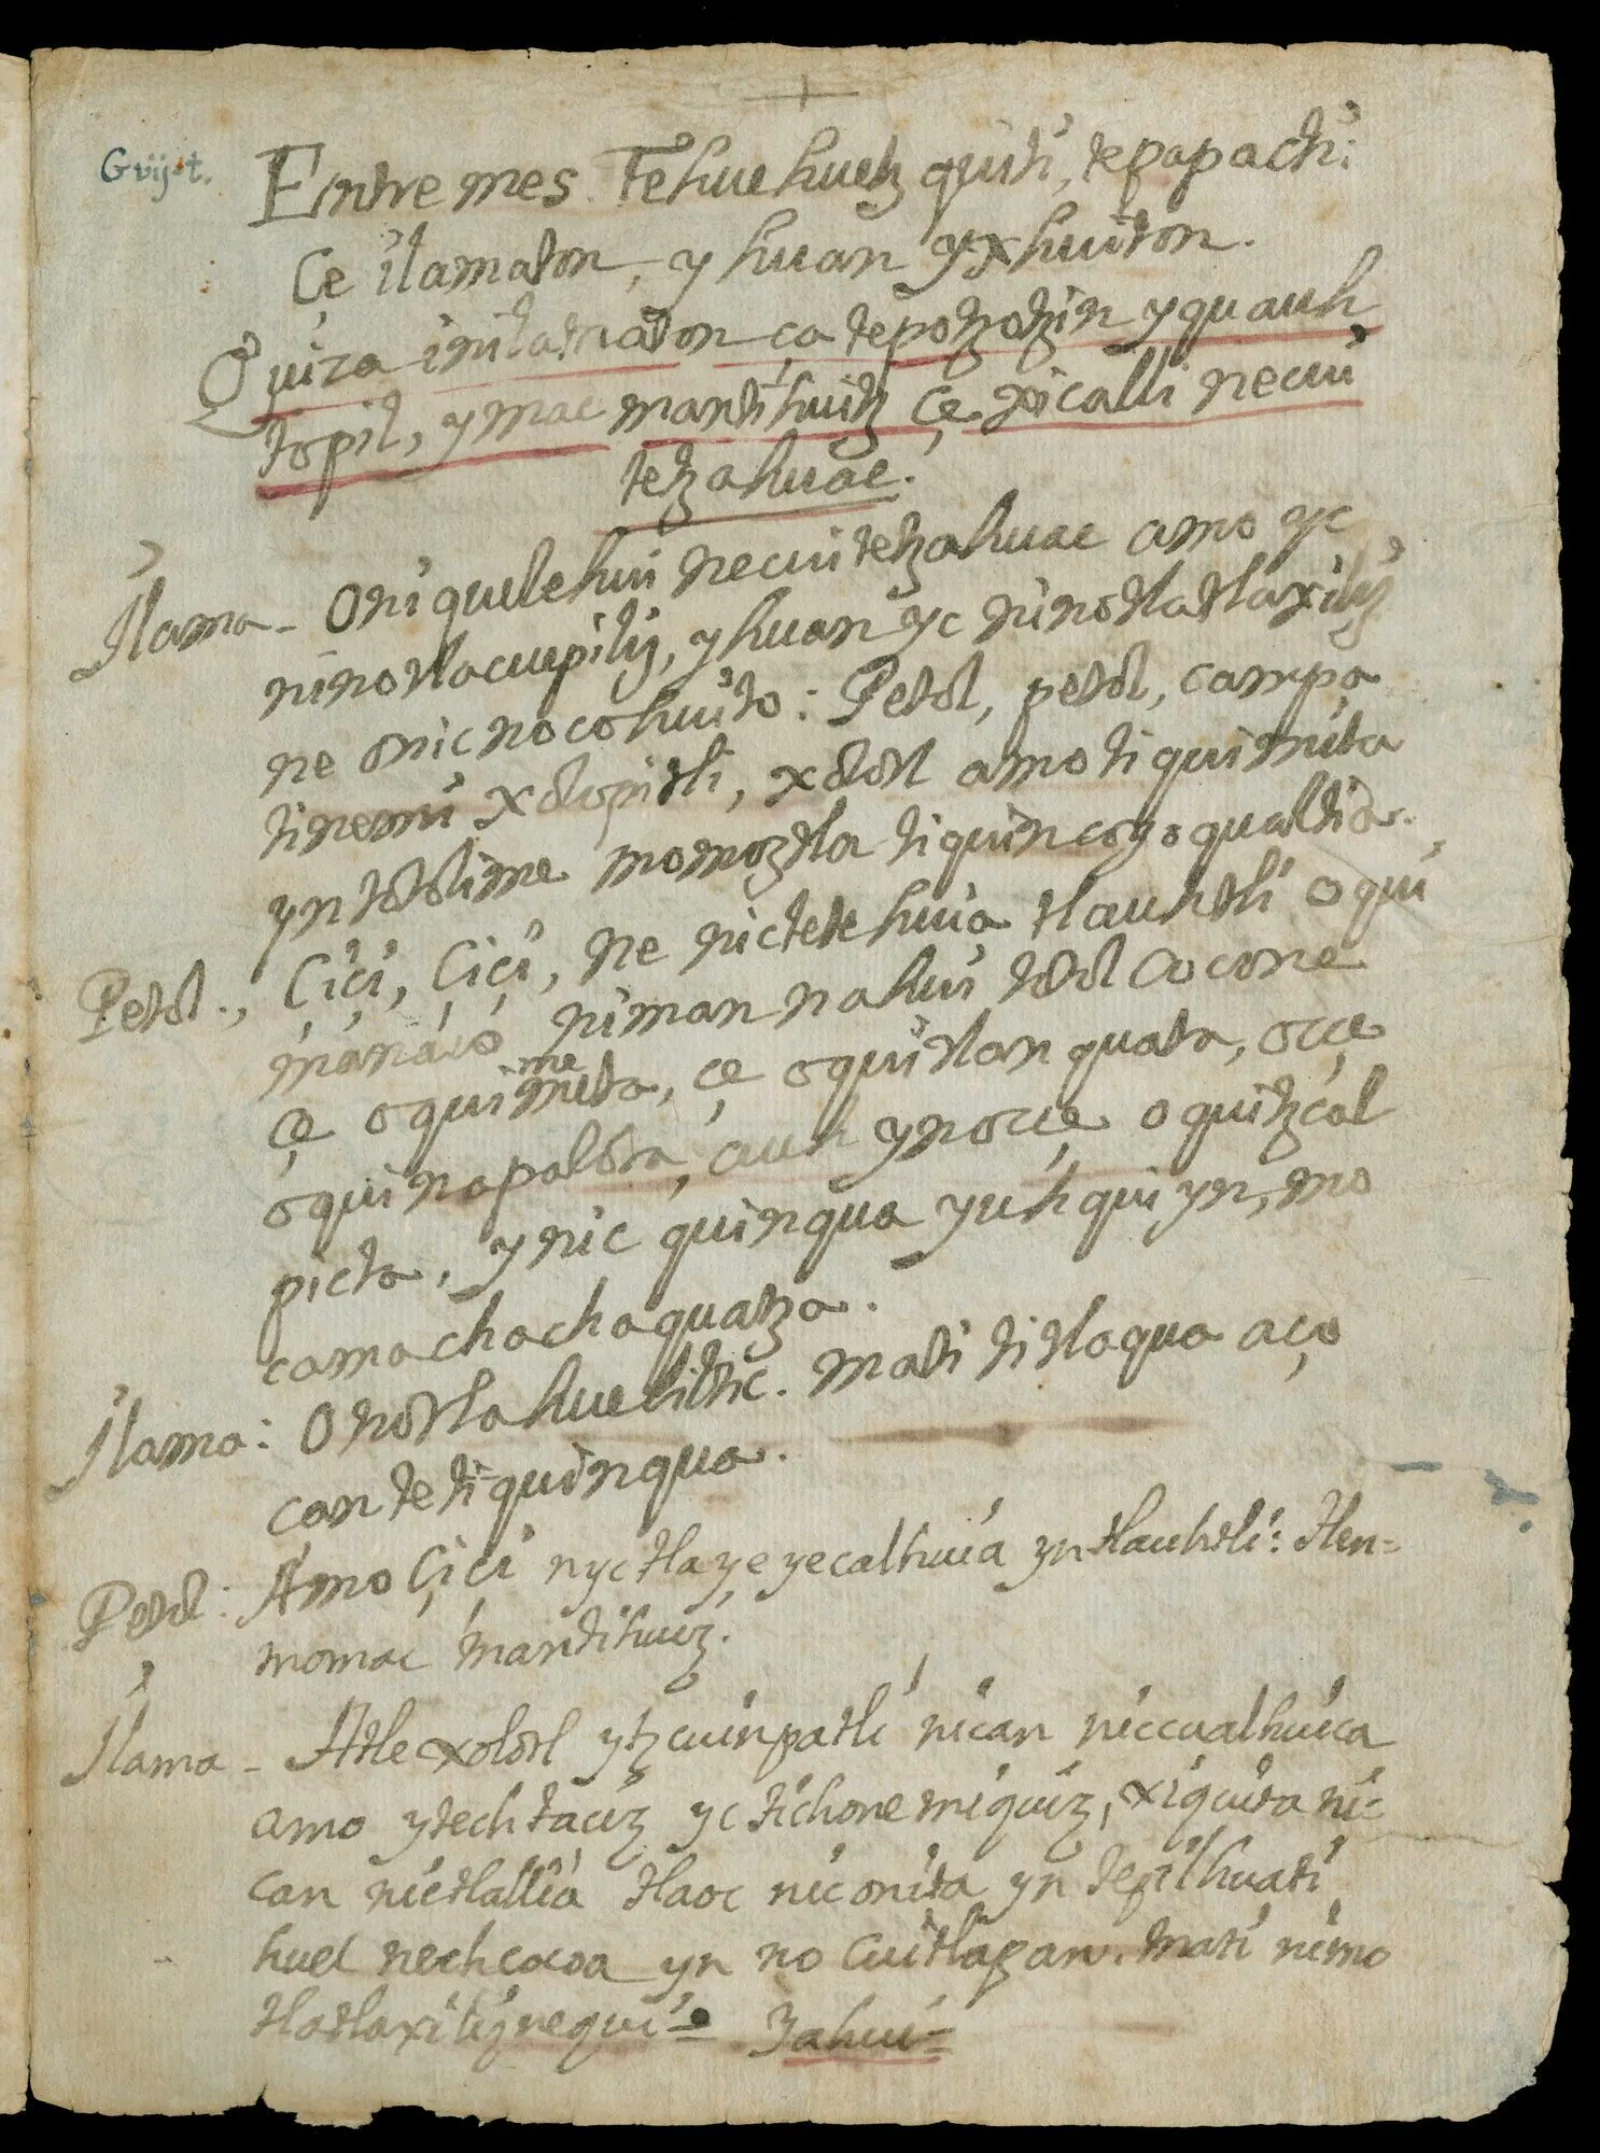 Gvijst.
Entremes. Tehuehuetzquiti, tepapacti:
Çe ilamaton, yhuan yxhuiton.
Quiza inilamaton ça tepotzotzin yquauh
topil, ymac mantihuitz çe xicalli necui
tetzahuac.
Ilama - O niquelehui necuitetzahuac amo yc
ninotlacuepiliz, yhuan yc ninotlatlaxiliz
ne onicnocohuito: Petol, petol, campa
tinemi xolopitli, xolotl amo tiquimita
yn totolime momoztla tiquincoyoqualtia.
Petol., Çiçi, Çiçi, ne nictetehuia tlauhtli oqui
manaco niman nahui totolcocone
çe oquimmeta, çe oquitlanquata, occe
oquinapalota, auh ynocçe oquitzcal
picta, ynic quinqua yuhquiyn, mo
camachachaquatza.
Ilama: O notlahueliltic. mati titlaqua aço
can te tiquinqua.
Petol: Amo Çiçi nyctlayeyecalhuia yn tlauhtli: tlen=
momac mantihuiz.
Ilama - Atle xolotl ytzcuinpatli nican niccualhuica
amo ytech taciz yc tichonemiquiz, xiquita ni=
can nictlallia tlaoc niconita yn tepilhuati
huel nechcocoa yn no cuitlapan. mati nimo
tlatlaxiliznequi= Yahui=